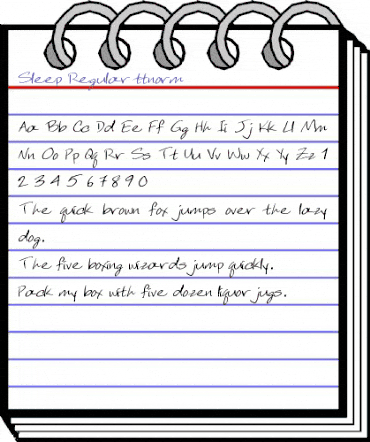 Sleep Regular ttnorm
Aa Bb Cc Dd Ee Ff Gg Hh Ii Jj Kk Ll Mm
Nn Oo Pp Qq Rr Ss Tt Uu Vv Ww Xx Yy Zz 1
2 3 4 5 6 7 8 9 0
The quick brown fox jumps over the lazy
dog.
The five boxing wizards jump quickly.
Pack my box with five dozen liquor jugs.